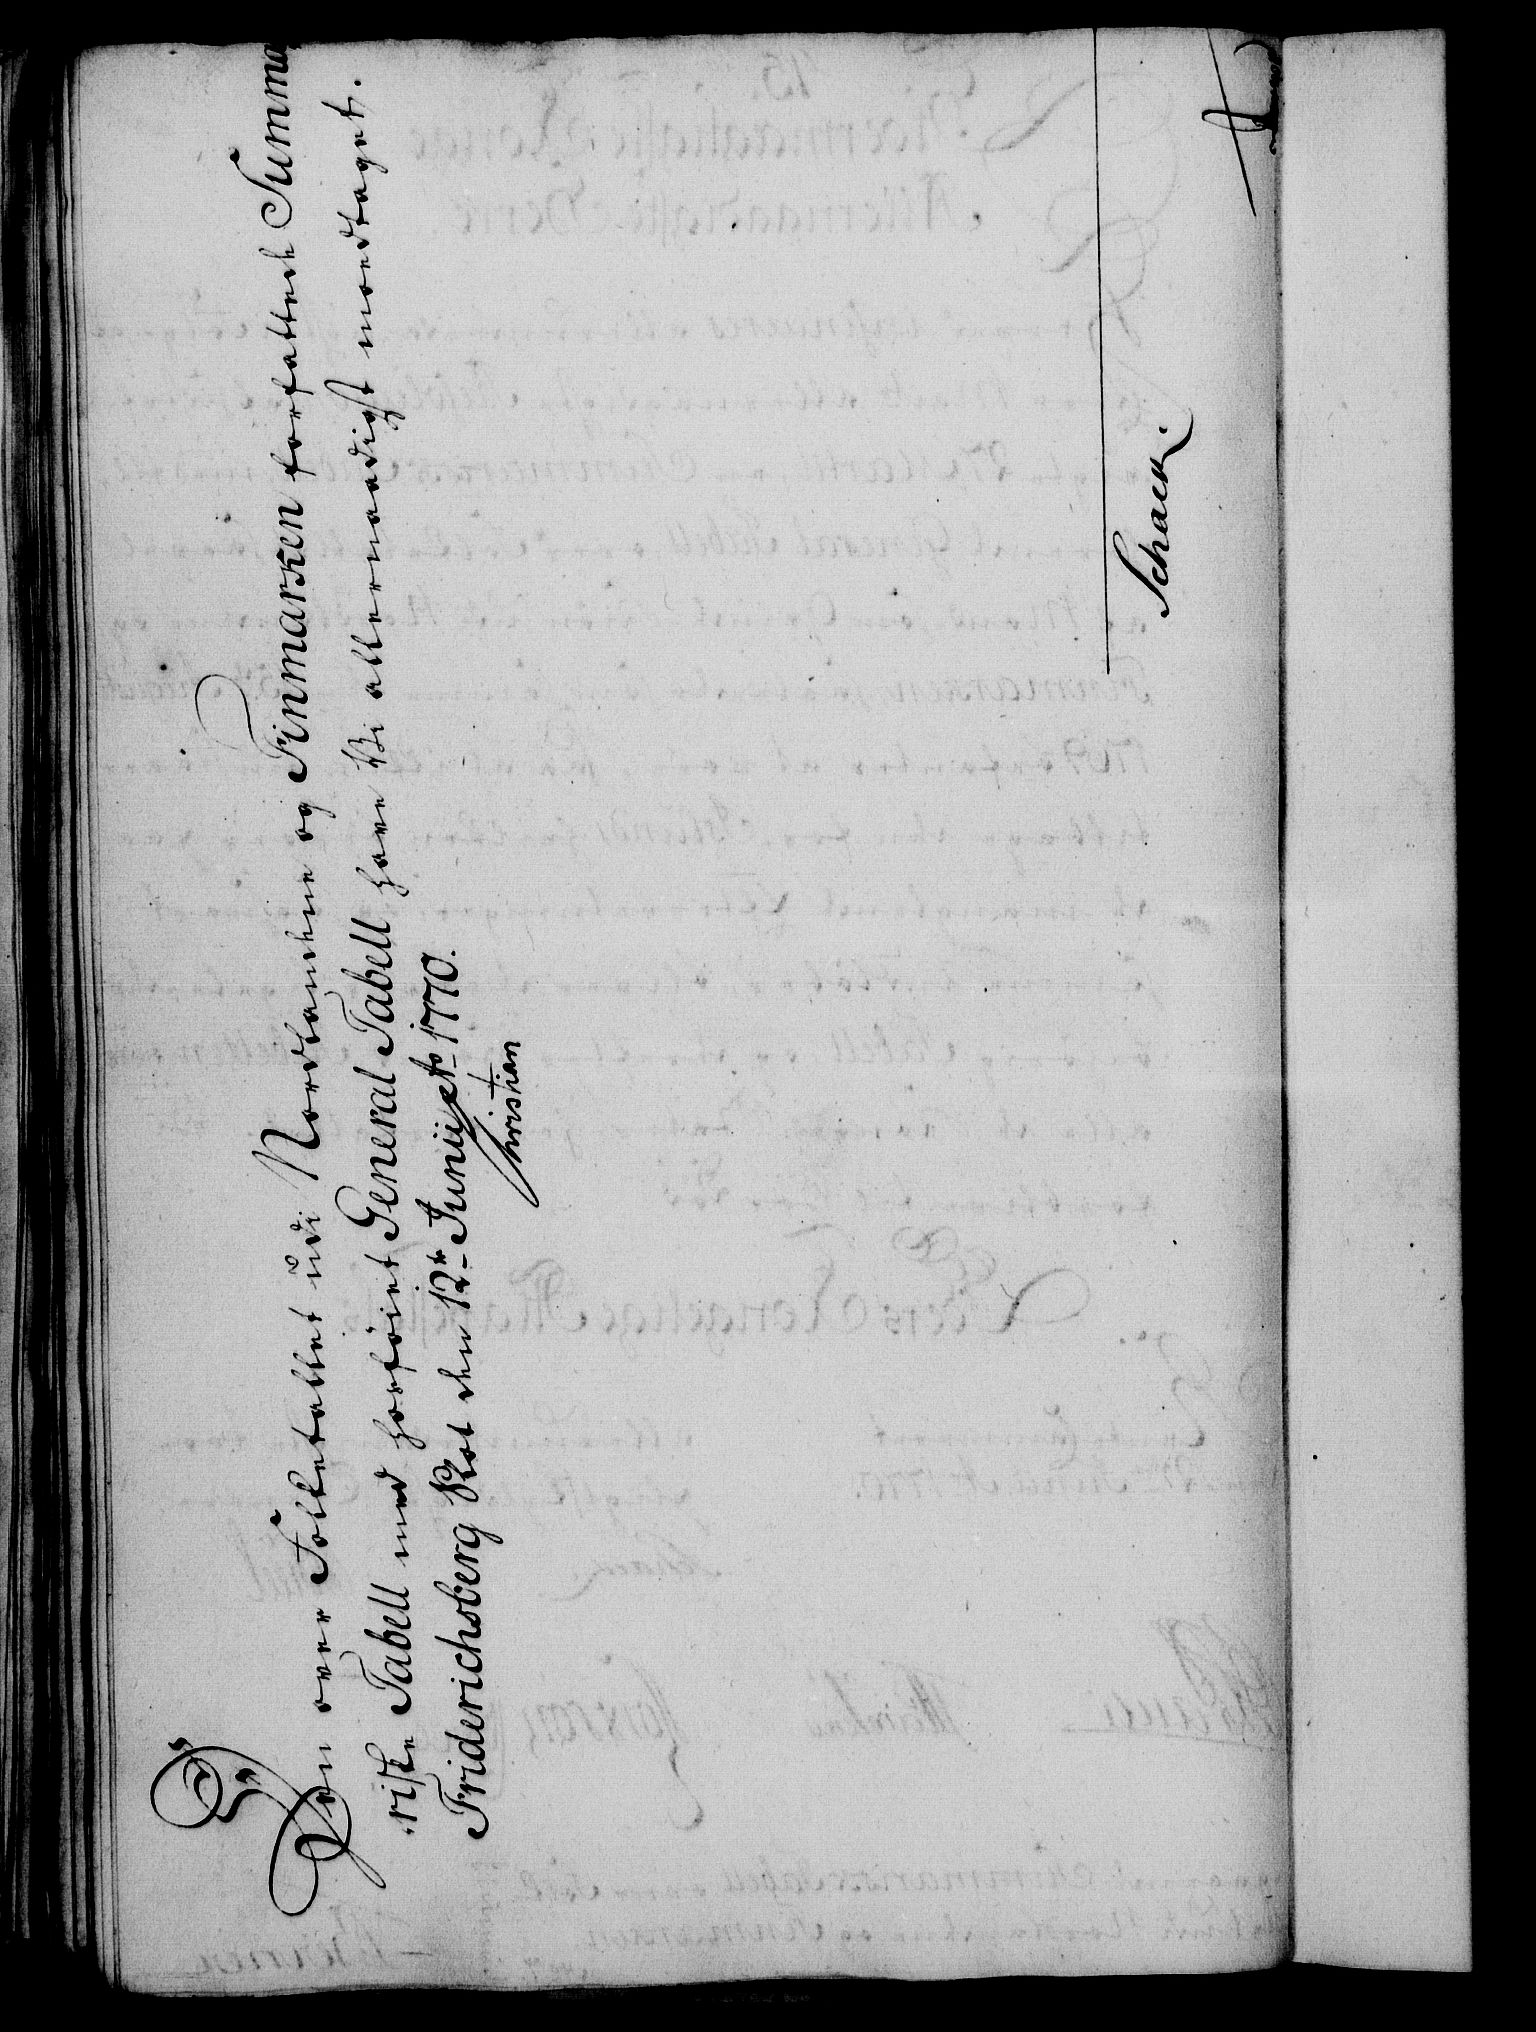 Den over Folketallet udi Nordlandene og Finmarken forfattede Summa
riske Tabell med hosföiet General-Tabell have Vi allernaadigst modtaget.
Friderichsberg Slot den 12te Junii Ao 1770.
Christian
Schack.